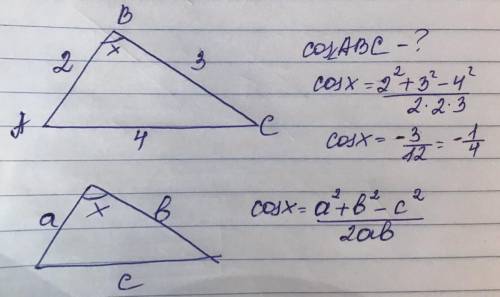 B
x
2
3
A
4
C
cosABC - ?
cosx = 2² + 3² - 4² / 2·2·3
cosx = -3/12 = -1/4
x
a
b
c
cosx = a² + b² - c² / 2ab